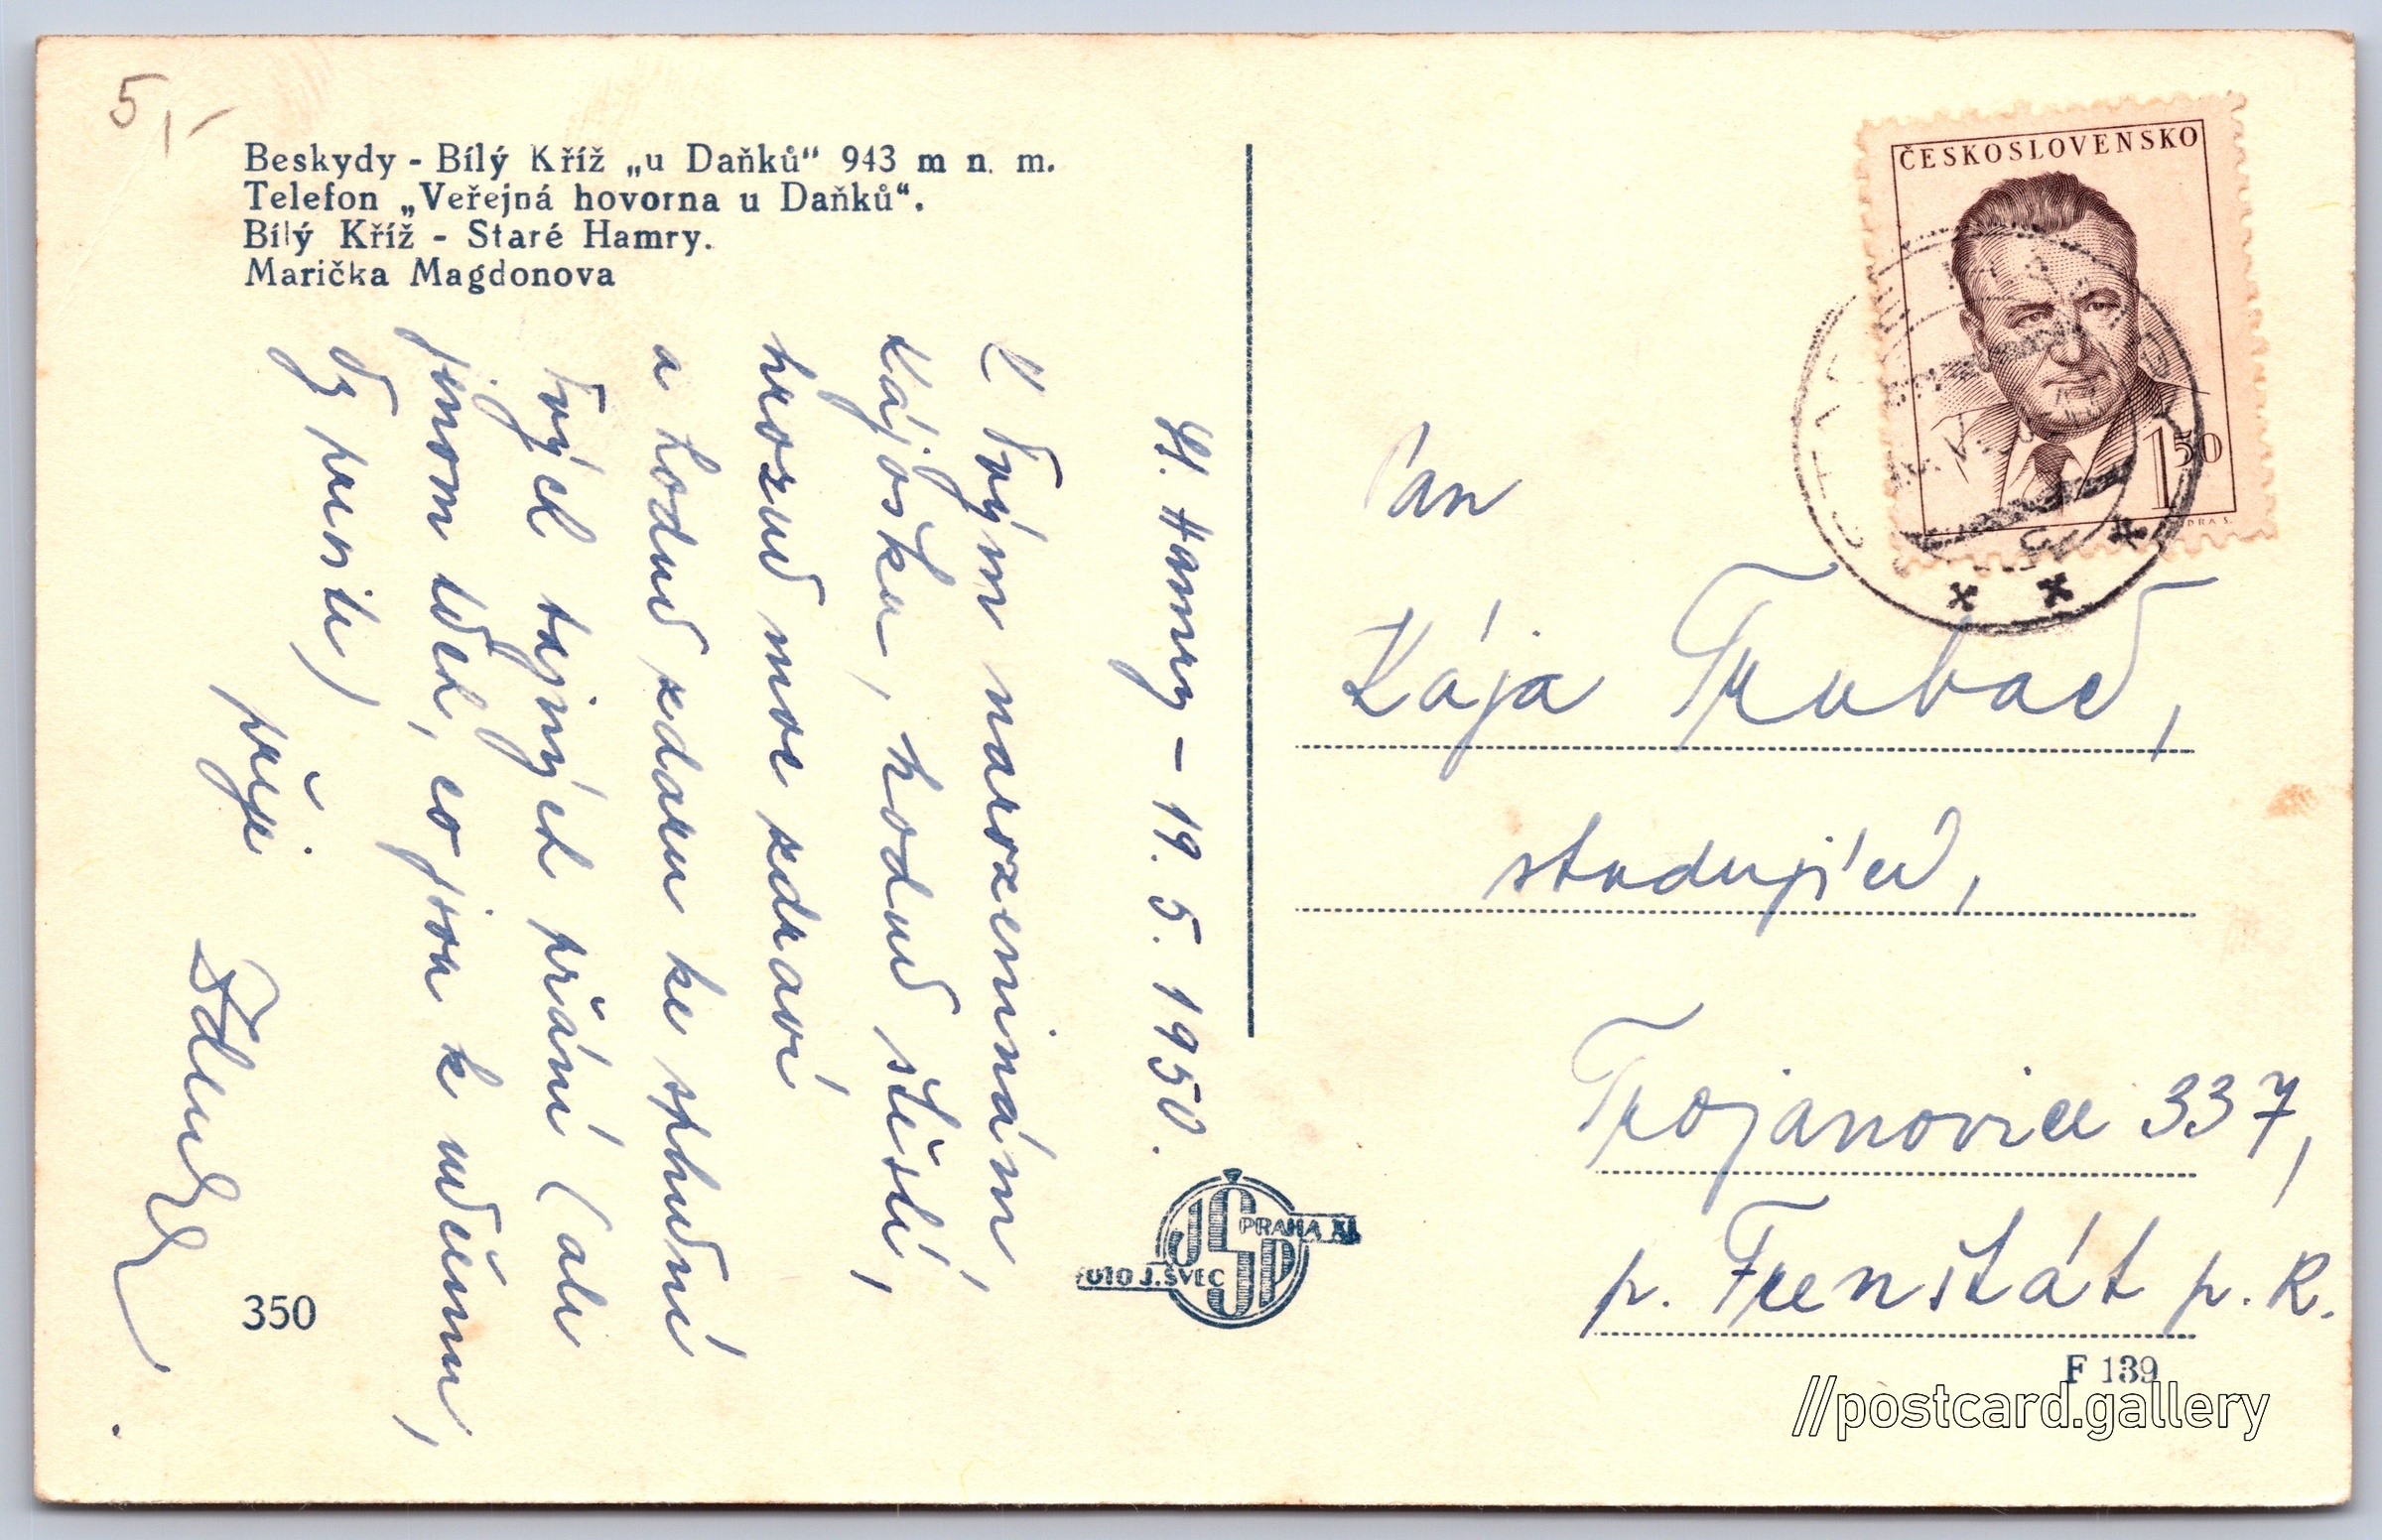 5,-
Beskydy - Bílý Kříž „u Daňků“ 943 m n. m.
Telefon „Veřejná hovorna u Daňků“.
Bílý Kříž - Staré Hamry.
Marička Magdonova
St. Hamry – 19. 5. 1950.
K Tvým narozeninám,
Kájošku, hodně štěstí,
hrozně moc zdraví
a hodně zdaru ke splnění
Tvých tajných přání (ale
jenom těch, co jsou k učení,
Ty pusile)
přeje
ČESKOSLOVENSKO
1 50
Pan
Kája Trubač,
studující,
Trojanovice 337,
p. Frenštát p. R.
JŠP
PRAHA XI.
FOTO J. ŠVEC
350
F 139
//postcard.gallery